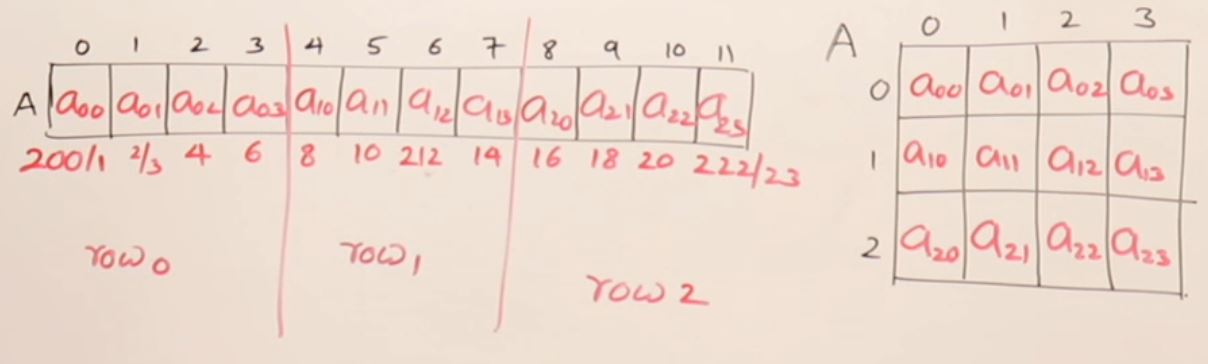 0 1 2 3 4 5 6 7 8 9 10 11
A a00 a01 a02 a03 a10 a11 a12 a13 a20 a21 a22 a23
200/1 2/3 4 6 8 10 212 14 16 18 20 222/23
row0 row1 row2
A 0 1 2 3
0 a00 a01 a02 a03
1 a10 a11 a12 a13
2 a20 a21 a22 a23